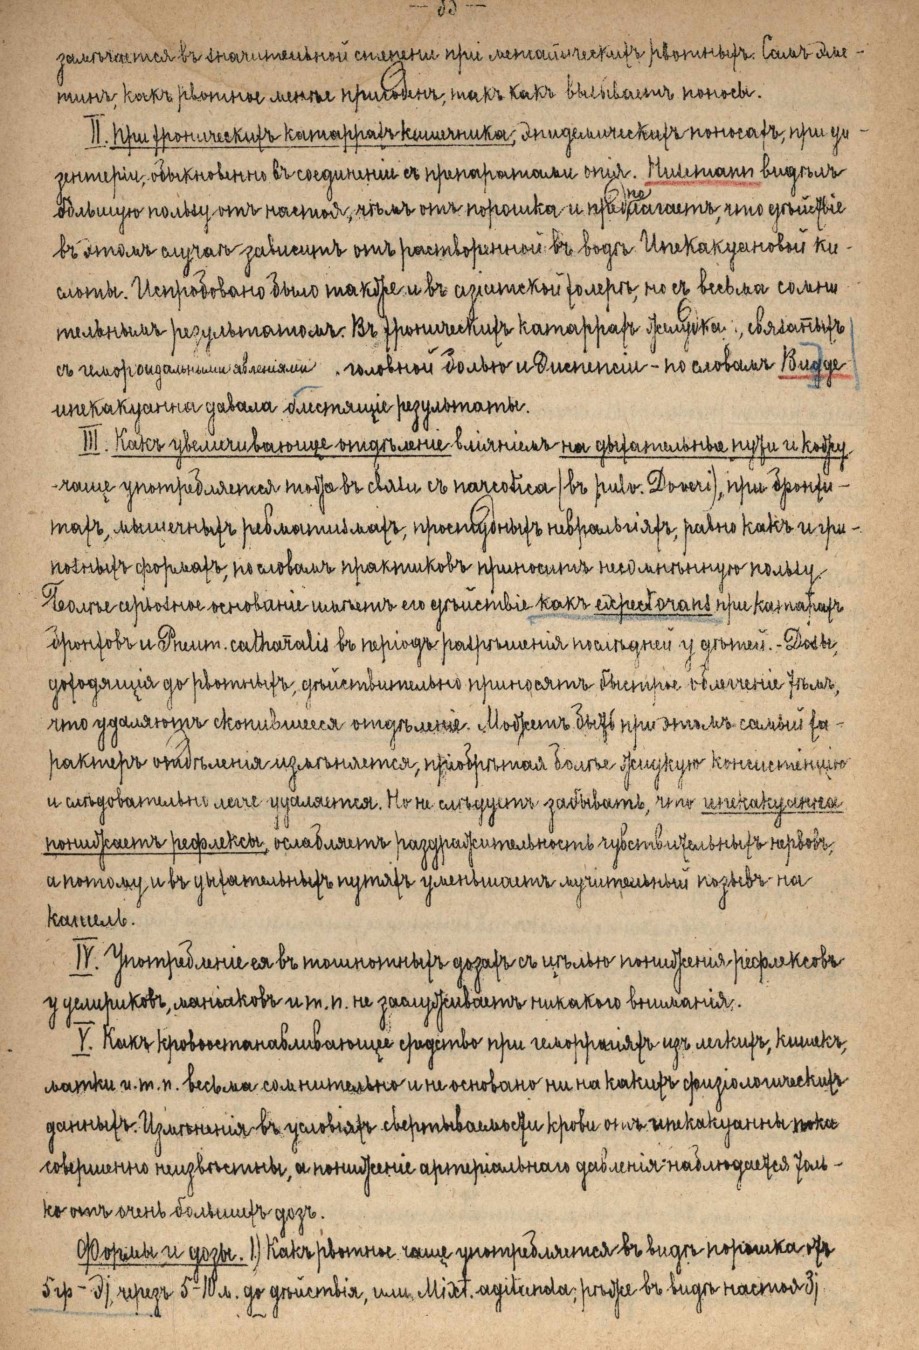 — 33 —
замѣчается въ значительной степени при металическихъ рвотныхъ. Самъ Эме-
тинъ, какъ рвотное менѣе пригоденъ, такъ какъ вызываетъ поносы.
II. При хроническихъ катаррахъ кишечника, эпидемическихъ поносахъ, при ди-
зентеріи, обыкновенно въ соединеніи съ препаратами опія. Husemann видѣлъ
большую пользу отъ настоя, чѣмъ отъ порошка и предполагаетъ, что дѣйствіе
въ этомъ случаѣ зависитъ отъ растворенной въ водѣ Ипекакуановой ки-
слоты. Испробовано было также и въ азіатской холерѣ, но съ весьма сомни
тельнымъ результатомъ. Въ хроническихъ катаррахъ желудка, связаныхъ
съ гемороидальными явленіями, головной болью и диспепсіи – по словамъ Будде
ипекакуанна давала блестящіе результаты.
III. Какъ увеличивающее отдѣленіе вліяніемъ на дыхательные пути и кожу
-чаще употребляется тоже въ связи съ narcotica (въ pulv. Doveri), при бронхи-
тахъ, мышечныхъ ревматизмахъ, простудныхъ невралгіяхъ, равно какъ и гри-
позныхъ формахъ, по словамъ практиковъ приноситъ несомнѣнную пользу.
Болѣе серьозное основаніе имѣетъ его дѣйствіе какъ expectorans при катаррахъ
бронховъ и Pneum. catharralis въ періодѣ разрѣшенія послѣдней у дѣтей. - Дозы,
доходящія до рвотныхъ, дѣйствительно приносятъ быстрое облегченіе тѣмъ,
что удаляютъ скопившееся отдѣленіе. Можетъ быть при этомъ самый ха-
рактеръ отдѣленія измѣняется, пріобрѣтая болѣе жидкую консистенцію
и слѣдовательно легче удаляется. Но не слѣдуетъ забывать, что ипекакуанна
понижаетъ рефлексы, ослабляетъ раздражительность чувствительныхъ нервовъ,
а потому и въ дыхательныхъ путяхъ уменьшаетъ мучительный позывъ на
кашель.
IV. Употребленіе ея въ тошнотныхъ дозахъ съ цѣлью пониженія рефлексовъ
у делириковъ, маніаковъ и т.п. не заслуживаетъ никакого вниманія.
V. Какъ кровоостанавливающее средство при геморрагіяхъ изъ легкихъ, кишекъ,
матки и.т.п. весьма сомнительно и не основано ни на какихъ физіологическихъ
данныхъ. Измѣненія въ условіяхъ свертываемости крови отъ ипекакуанны пока
совершенно неизвѣстны, а пониженіе артеріальнаго давленія наблюдается толь-
ко отъ очень большихъ дозъ.
Формы и дозы. 1) Какъ рвотное чаще употребляется въ видѣ порошка отъ
5 гр – Эj, черезъ 5-10 м. до дѣйствія, или Mixt. agitanda; рѣже въ видѣ настоя Зj